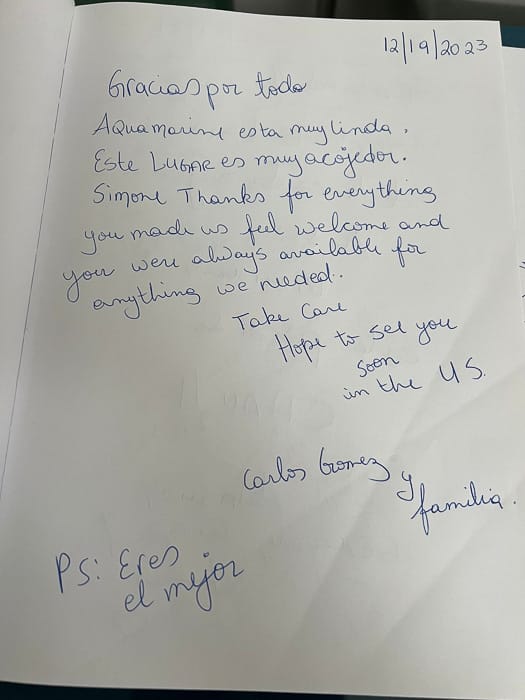 12/19/2023
Gracias por todo
Aquamarine esta muy linda.
Este LUGAR es muy acojedor.
Simone Thanks for everything
you made us feel welcome and
you were always available for
anything we needed..
Take Care
Hope to see you
soon
in the US.
Carlos Gomez
y
familia.
PS: Eres
el mejor